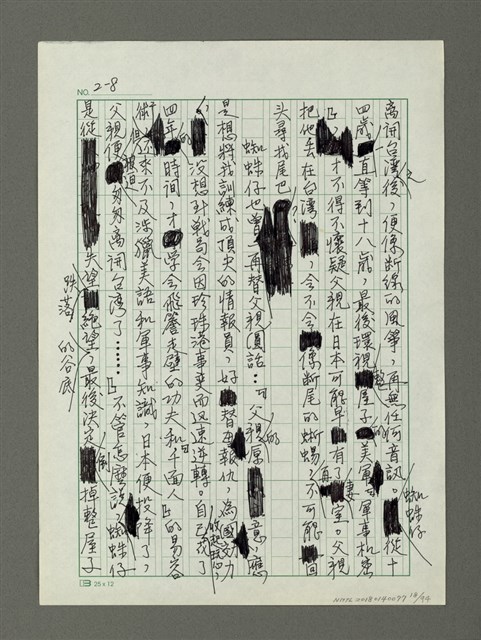 NO. 2-8
離開台灣後，便像斷線的風箏，再無任何音訊。蜘蛛仔從十
四歲一直等到十八歲，最後環視整屋子的美軍軍事机密
，才不得不懷疑父親在日本可能早有了妻室。父親
把他丟在台灣，會不會像断尾的蜥蜴，不可能再回
頭尋找尾巴
蜘蛛仔也曾再替父親圓話：「父親的原意，應
是想將我訓練成頂尖的情報員，好替母報仇，為國效力
。没想到戰局会因珍珠港事變而迅速逆轉。自己花了
四年時間，才學会飛簷走壁的功夫和「千面人」的易容
術，但還來不及涉獵美語和軍事知識，日本便投降了，
父親便被迫匆匆离開台灣了……」不管怎麼說，蜘蛛仔
是從失望跌落絕望的谷底，最後決定倒掉整屋子
25×12